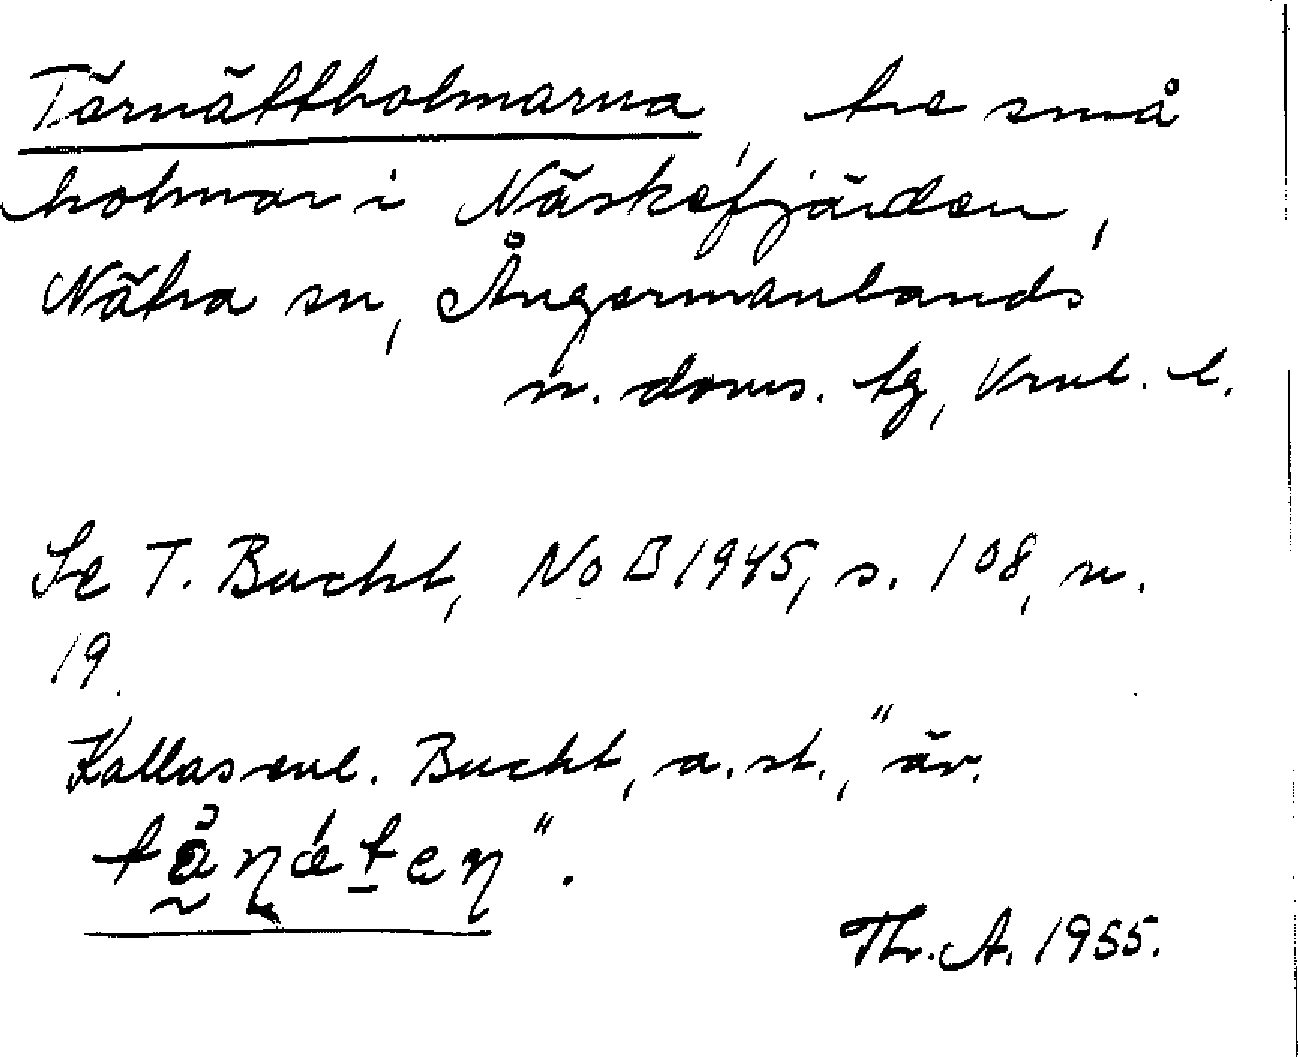 Tärnättholmarna, tre små
holmar i Näskefjärden,
Nätra sn, Ångermanlands
n. doms. tg, Vrnl. l.
Se T. Bucht, NoB 1945, s. 108, n.
19.
Kallas enl. Bucht, a. st., "äv.
Th. A. 1955.